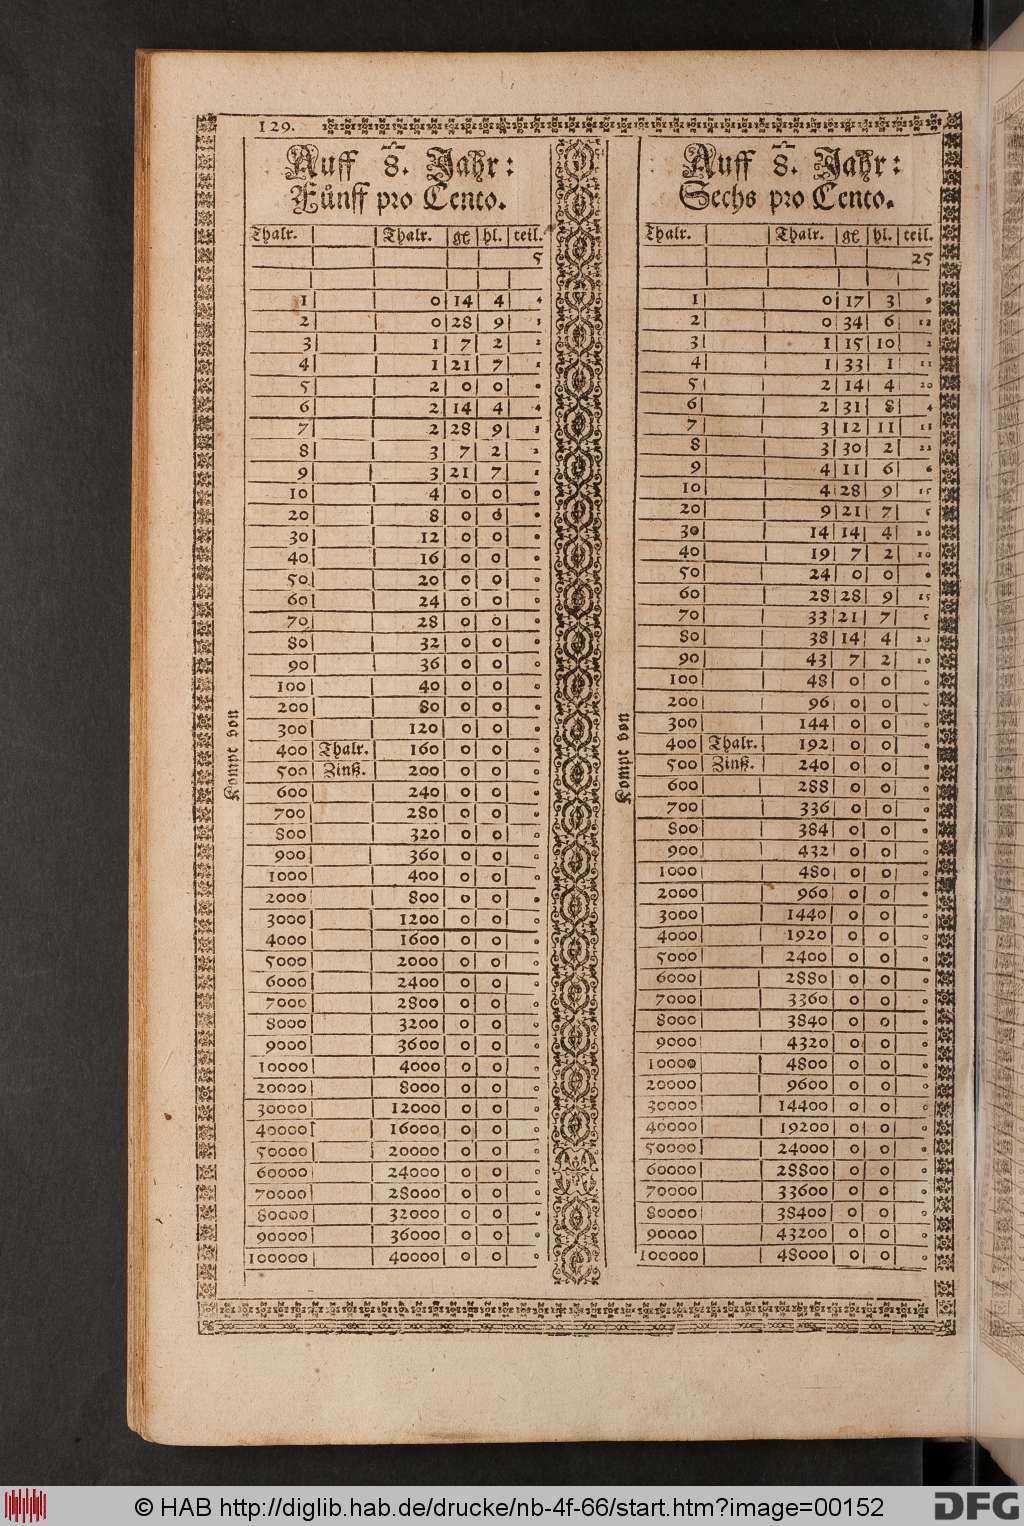 129.
Auff 8. Jahr:
Fůnff pro Cento.
Thalr. Thalr. gl hl. teil.
5
1 0 14 4 4
2 0 28 9 3
3 1 7 2 2
4 1 21 7 1
5 2 0 0 0
6 2 14 4 4
7 2 28 9 3
8 3 7 2 2
9 3 21 7 1
10 4 0 0 0
20 8 0 0 0
30 12 0 0 0
40 16 0 0 0
50 20 0 0 0
60 24 0 0 0
70 28 0 0 0
80 32 0 0 0
90 36 0 0 0
100 40 0 0 0
200 80 0 0 0
300 120 0 0 0
400 Thalr. 160 0 0 0
500 Zinß. 200 0 0 0
600 240 0 0 0
700 280 0 0 0
800 320 0 0 0
900 360 0 0 0
1000 400 0 0 0
2000 800 0 0 0
3000 1200 0 0 0
4000 1600 0 0 0
5000 2000 0 0 0
6000 2400 0 0 0
7000 2800 0 0 0
8000 3200 0 0 0
9000 3600 0 0 0
10000 4000 0 0 0
20000 8000 0 0 0
30000 12000 0 0 0
40000 16000 0 0 0
50000 20000 0 0 0
60000 24000 0 0 0
70000 28000 0 0 0
80000 32000 0 0 0
90000 36000 0 0 0
100000 40000 0 0 0
Kompt von
Auff 8. Jahr:
Sechs pro Cento.
Thalr. Thalr. gl hl. teil.
25
1 0 17 3 9
2 0 34 6 12
3 1 15 10 2
4 1 33 1 11
5 2 14 4 20
6 2 31 8 4
7 3 12 11 13
8 3 30 2 22
9 4 11 6 6
10 4 28 9 15
20 9 21 7 5
30 14 14 4 20
40 19 7 2 10
50 24 0 0 0
60 28 28 9 15
70 33 21 7 5
80 38 14 4 20
90 43 7 2 10
100 48 0 0 0
200 96 0 0 0
300 144 0 0 0
400 Thalr. 192 0 0 0
500 Zinß. 240 0 0 0
600 288 0 0 0
700 336 0 0 0
800 384 0 0 0
900 432 0 0 0
1000 480 0 0 0
2000 960 0 0 0
3000 1440 0 0 0
4000 1920 0 0 0
5000 2400 0 0 0
6000 2880 0 0 0
7000 3360 0 0 0
8000 3840 0 0 0
9000 4320 0 0 0
10000 4800 0 0 0
20000 9600 0 0 0
30000 14400 0 0 0
40000 19200 0 0 0
50000 24000 0 0 0
60000 28800 0 0 0
70000 33600 0 0 0
80000 38400 0 0 0
90000 43200 0 0 0
100000 48000 0 0 0
Kompt von
© HAB http://diglib.hab.de/drucke/nb-4f-66/start.htm?image=00152
DFG